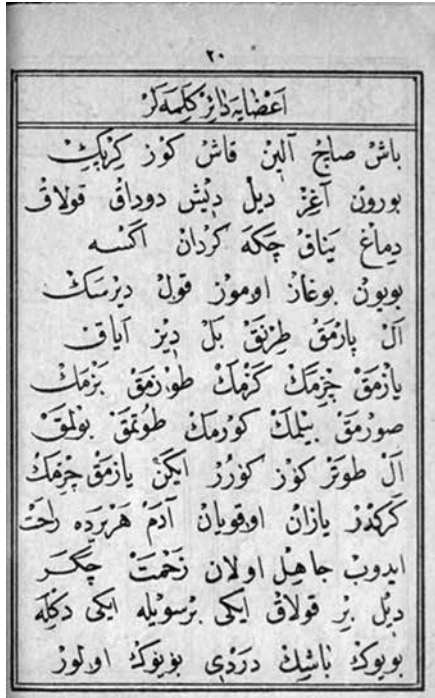 ٢٠
اَعْضَايَه دَائِرْ كَلِمَه لَرْ
باش صاچ آلين قاش كوز كرپك
بورون آغز ديل ديش دوداق قولاق
دماغ يناق چكه كردان اكسه
بويون بوغاز اوموز قول ديرسك
آل پارمق طرنق بل ديز آياق
يازمق چزمك كزمك طورمق بزمك
صورمق بيلمك كورمك طوتمق بولمق
آل طوتر كوز كورر ايكن يازمق چزمك
كركدر يازان اوقويان آدم هر يرده راحت
ايدوب جاهل اولان زحمت چكر
ديل بر قولاق ايكى بر سويله ايكى دكله
بويوك باشك دردى بويوك اولور